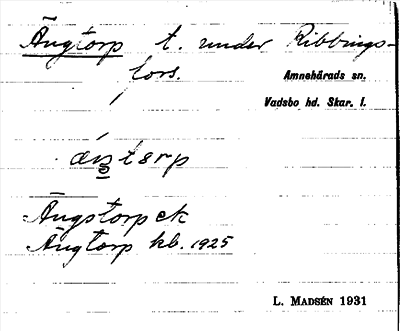 Ängtorp t. under Ribbings-
fors.
Amnehärads sn.
Vadsbo hd. Skar. l.
Ängstorp ek
Ängtorp kb. 1925
L. MADSÉN 1931